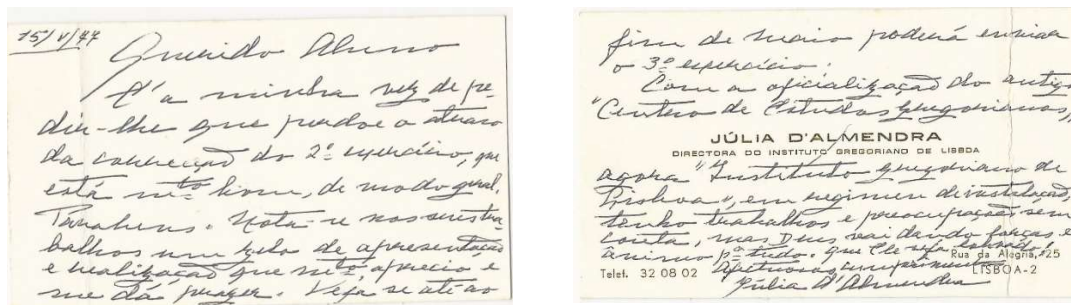 15/V/77
Querido Aluno
É a minha vez de pe-
dir-lhe que perdoe o atraso
da correcção do 2º exercício, que
está mto bom, de modo geral.
Parabens. Nota-se nos seus tra-
balhos um zelo de apresentação
e realização que mto aprecio e
me dá prazer. Veja se até ao
fim de Maio poderá enviar
o 3º exercício.
Com a oficialização do antigo
"Centro de Estudos Gregorianos,,
JÚLIA D'ALMENDRA
DIRECTORA DO INSTITUTO GREGORIANO DE LISBOA
agora "Instituto Gregoriano de
Lisboa", em regimen de instalação,
tenho trabalhos e preocupações sem
conta, mas Deus vai dando forças e
ânimo pª tudo. Que Ele seja louvado!
Rua da Alegria, 25
Telef. 32 08 02
LISBOA-2
Afectuosos cumprimentos
Júlia d'Almendra